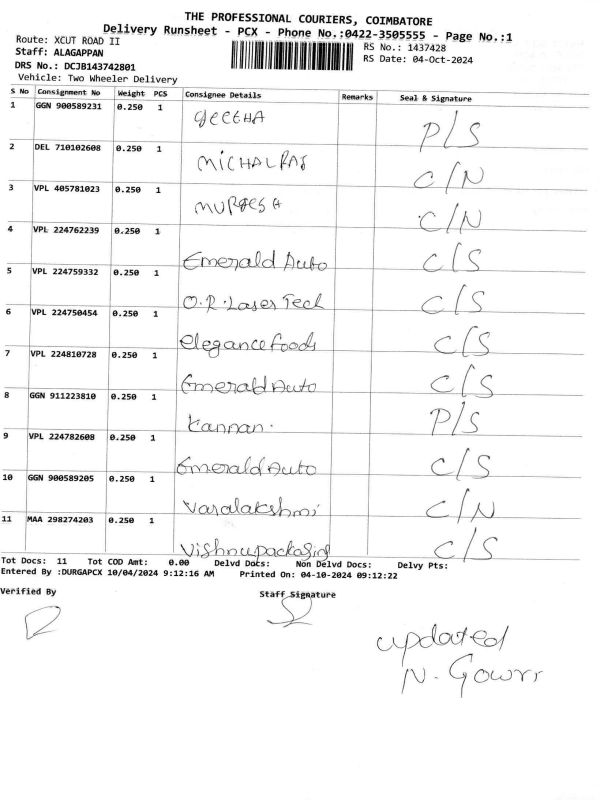 THE PROFESSIONAL COURIERS, COIMBATORE
Delivery Runsheet - PCX - Phone No.:0422-3505555 - Page No.:1
Route: XCUT ROAD II
RS No.: 1437428
Staff: ALAGAPPAN
RS Date: 04-Oct-2024
DRS No.: DCJB143742801
Vehicle: Two Wheeler Delivery
S No Consignment No Weight PCS Consignee Details Remarks Seal & Signature
1 GGN 900589231 0.250 1 GEETHA P/S
2 DEL 710102608 0.250 1 MICHALRAJ C/N
3 VPL 405781023 0.250 1 MURGESH C/N
4 VPL 224762239 0.250 1 Emerald Auto C/S
5 VPL 224759332 0.250 1 O.R. Laser Tech C/S
6 VPL 224750454 0.250 1 elegance foods C/S
7 VPL 224810728 0.250 1 Emerald Auto C/S
8 GGN 911223810 0.250 1 Kannan. P/S
9 VPL 224782608 0.250 1 Emerald Auto C/S
10 GGN 900589205 0.250 1 Varalakshmi C/N
11 MAA 298274203 0.250 1 Vishnupackaging C/S
Tot Docs: 11 Tot COD Amt: 0.00 Delvd Docs: Non Delvd Docs: Delvy Pts:
Entered By :DURGAPCX 10/04/2024 9:12:16 AM Printed On: 04-10-2024 09:12:22
Verified By Staff Signature
updated
N. Gowri